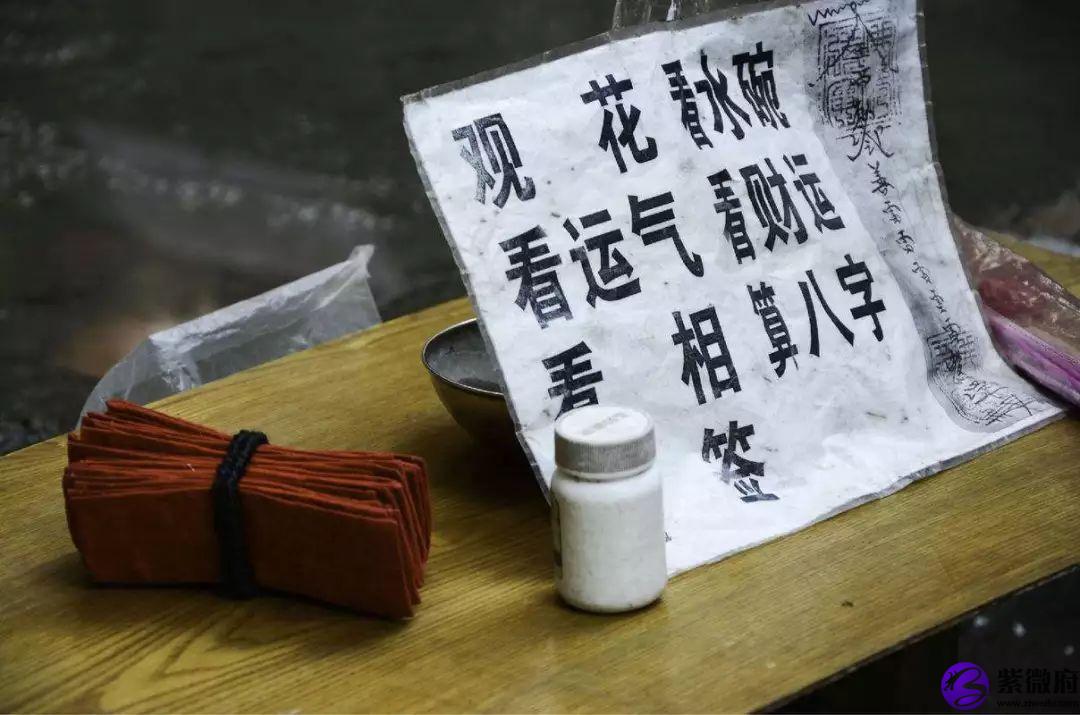 观花 看水碗
看运气 看财运
看相 算八字
签
紫微府